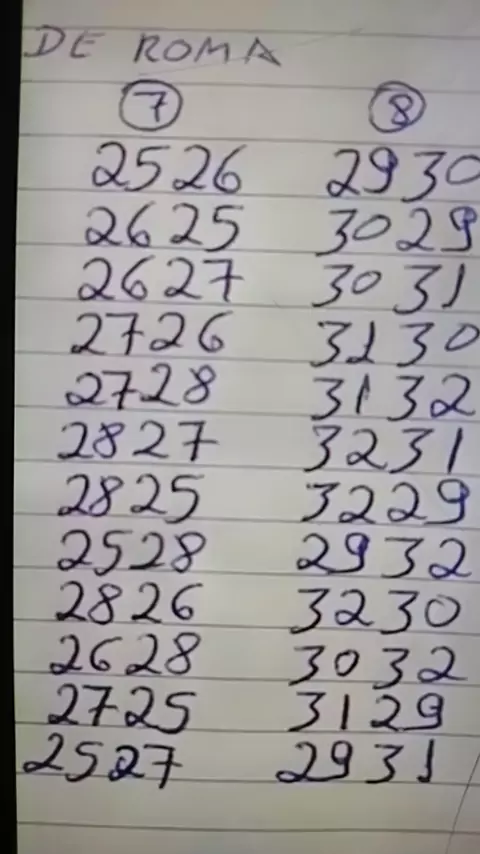 DE ROMA
7 8
2526 2930
2625 3029
2627 3031
2726 3130
2728 3132
2827 3231
2825 3229
2528 2932
2826 3230
2628 3032
2725 3129
2527 2931